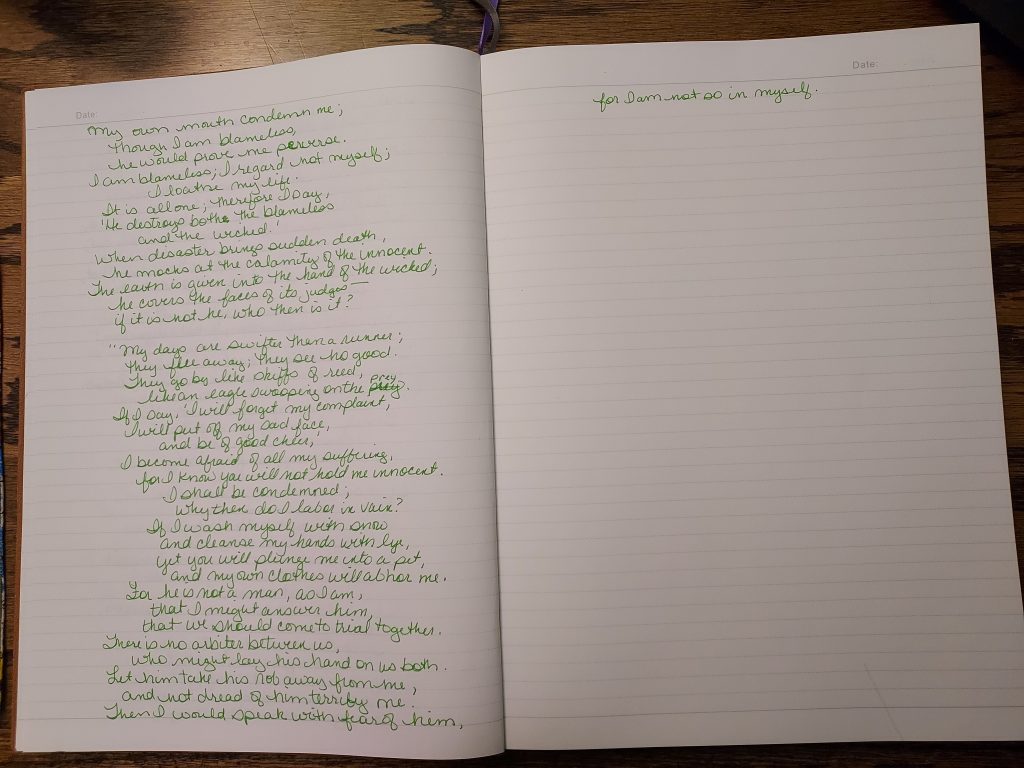 Date:
My own mouth condemn me;
Though I am blameless,
he would prove me perverse.
I am blameless; I regard not myself;
I loathe my life.
It is all one; therefore I say,
'He destroys both the blameless
and the wicked.'
When disaster brings sudden death,
he mocks at the calamity of the innocent.
The earth is given into the hand of the wicked;
he covers the faces of its judges—
if it is not he, who then is it?
"My days are swifter than a runner;
they flee away; they see no good.
They go by like skiffs of reed,
like an eagle swooping on the prey.
If I say, 'I will forget my complaint,
I will put off my sad face,
and be of good cheer,'
I become afraid of all my suffering,
for I know you will not hold me innocent.
I shall be condemned;
why then do I labor in vain?
If I wash myself with snow
and cleanse my hands with lye,
yet you will plunge me into a pit,
and my own clothes will abhor me.
For he is not a man, as I am,
that I might answer him,
that we should come to trial together.
There is no arbiter between us,
who might lay his hand on us both.
Let him take his rod away from me,
and not dread of him terrify me.
Then I would speak with fear of him,
Date:
for I am not so in myself.